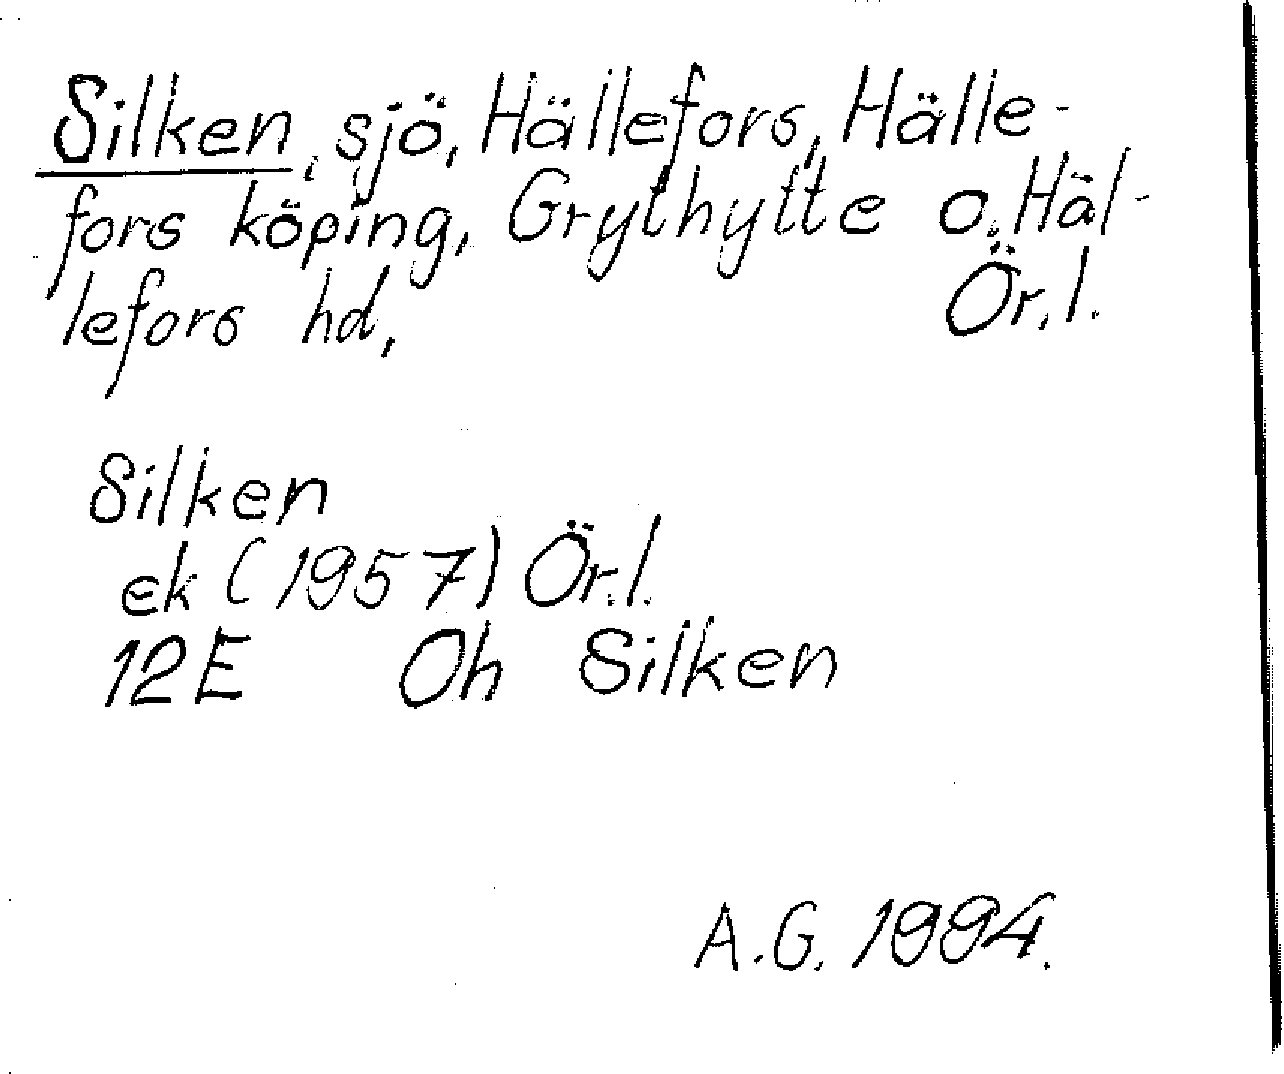 Silken, sjö, Hällefors, Hälle-
fors köping, Grythytte o. Häl-
lefors hd, Ör.l.
Silken
ek (1957) Ör.l.
12E Oh Silken
A.G. 1994.